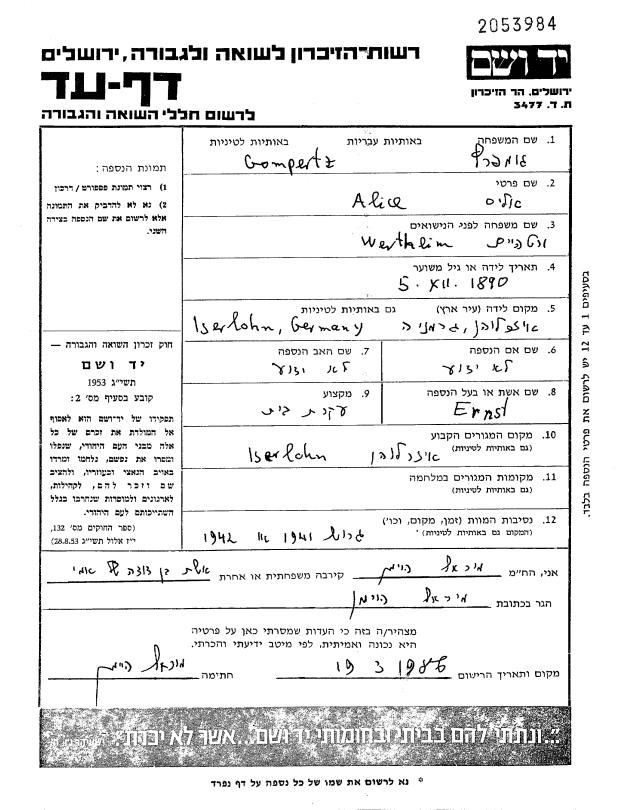 2053984
רשות־הזיכרון לשואה ולגבורה, ירושלים
יד ושם
דף-עד
ירושלים, הר הזיכרון
ת. ד. 3477
לרשום חללי השואה והגבורה
1. שם המשפחה באותיות עבריות באותיות לטיניות
גומפרץ Gompertz
2. שם פרטי
אליס Alice
3. שם משפחה לפני הנישואים
ורטהיים Wertheim
4. תאריך לידה או גיל משוער
5. XII. 1890
5. מקום לידה (עיר ארץ) גם באותיות לטיניות
איזרלוהן, גרמניה Iserlohn, Germany
6. שם אם הנספה
לא ידוע
7. שם האב הנספה
לא ידוע
8. שם אשת או בעל הנספה
Ernst
9. מקצוע
עקרת בית
10. מקום המגורים הקבוע
(גם באותיות לטיניות)
איזרלוהן Iserlohn
11. מקומות המגורים במלחמה
(גם באותיות לטיניות)
12. נסיבות המוות (זמן, מקום, וכו')
(המקום גם באותיות לטיניות)
גרוש 1941 או 1942
תמונת הנספה:
1) רצוי תמונת פספורט / דרכון
2) נא לא להדביק את התמונה
אלא לרשום את שם הנספה בצידה
השני.
חוק זכרון השואה והגבורה —
יד ושם
תשי"ג 1953
קובע בסעיף מס' 2:
תפקידו של יד-ושם הוא לאסוף
אל המולדת את זכרם של כל
אלה מבני העם היהודי, שנפלו
ומסרו את נפשם, נלחמו ומרדו
באויב הנאצי ובעוזריו, ולהציב
שם וזכר להם, לקהילות,
לארגונים ולמוסדות שנחרבו בגלל
השתייכותם לעם היהודי.
(ספר החוקים מס' 132,
י"ז אלול תשי"ג 28.8.53)
בסעיפים 1 עד 12 יש לרשום את פרטי הנספה בלבד.
אני, הח"מ קירבה משפחתית או אחרת אשת בן דודה של אמי
הגר בכתובת
מצהיר/ה בזה כי העדות שמסרתי כאן על פרטיה
היא נכונה ואמיתית, לפי מיטב ידיעתי והכרתי.
מקום ותאריך הרישום 19 3 1986 חתימה
"...ונתתי להם בביתי ובחומותי יד ושם... אשר לא יכרת".
* נא לרשום את שמו של כל נספה על דף נפרד